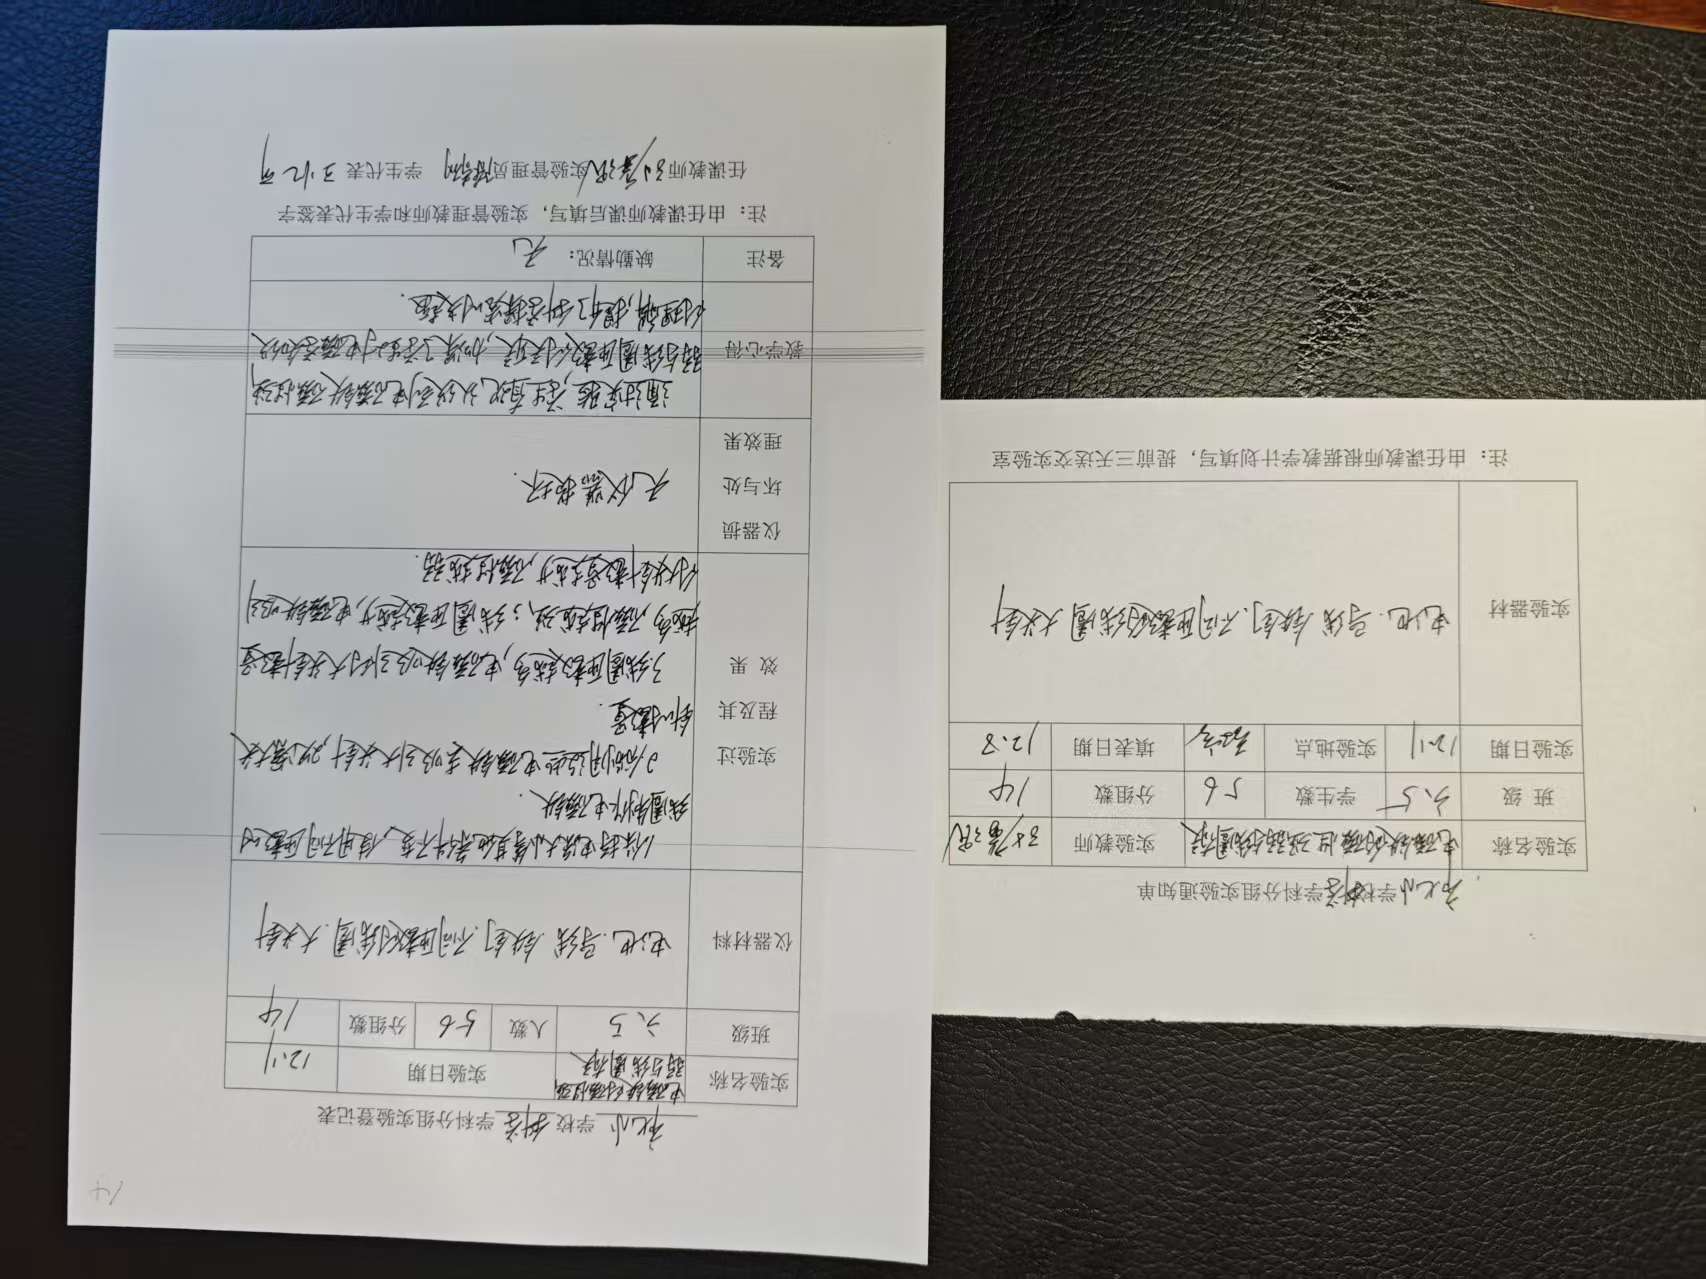 14
永北小 学校 科学 学科分组实验登记表
实验名称 电磁铁的磁性强弱与线圈有关 实验日期 12.11
班级 六.5 人数 56 分组数 14
仪器材料 电池.导线.铁钉.不同匝数的线圈.大头针
实验过程及其效果
1.保持电流大小等其他条件不变,使用不同匝数的
线圈制作电磁铁.
2.分别用这些电磁铁去吸引大头针,观察大头
针的数量.
3.线圈匝数越多,电磁铁吸引的大头针数量
越多,磁性越强;线圈匝数越少,电磁铁吸引
的大头针数量越少,磁性越弱.
仪器损坏与处理效果 无仪器损坏.
教学心得
通过实验,学生直观认识到电磁铁磁性强
弱与线圈匝数的关联,加深了学生对电磁学知识
的理解,提升了科学探究的实验.
备注 缺勤情况: 无
注: 由任课教师课后填写, 实验管理教师和学生代表签字
任课教师 实验管理员 学生代表
学校 科学 学科分组实验通知单
实验名称 电磁铁的磁性强弱与线圈有关 实验教师
班 级 六.5 学生数 56 分组数 14
实验日期 12.11 实验地点 填表日期 12.8
实验器材 电池.导线.铁钉.不同匝数的线圈.大头针
注: 由任课教师根据教学计划填写, 提前三天送交实验室